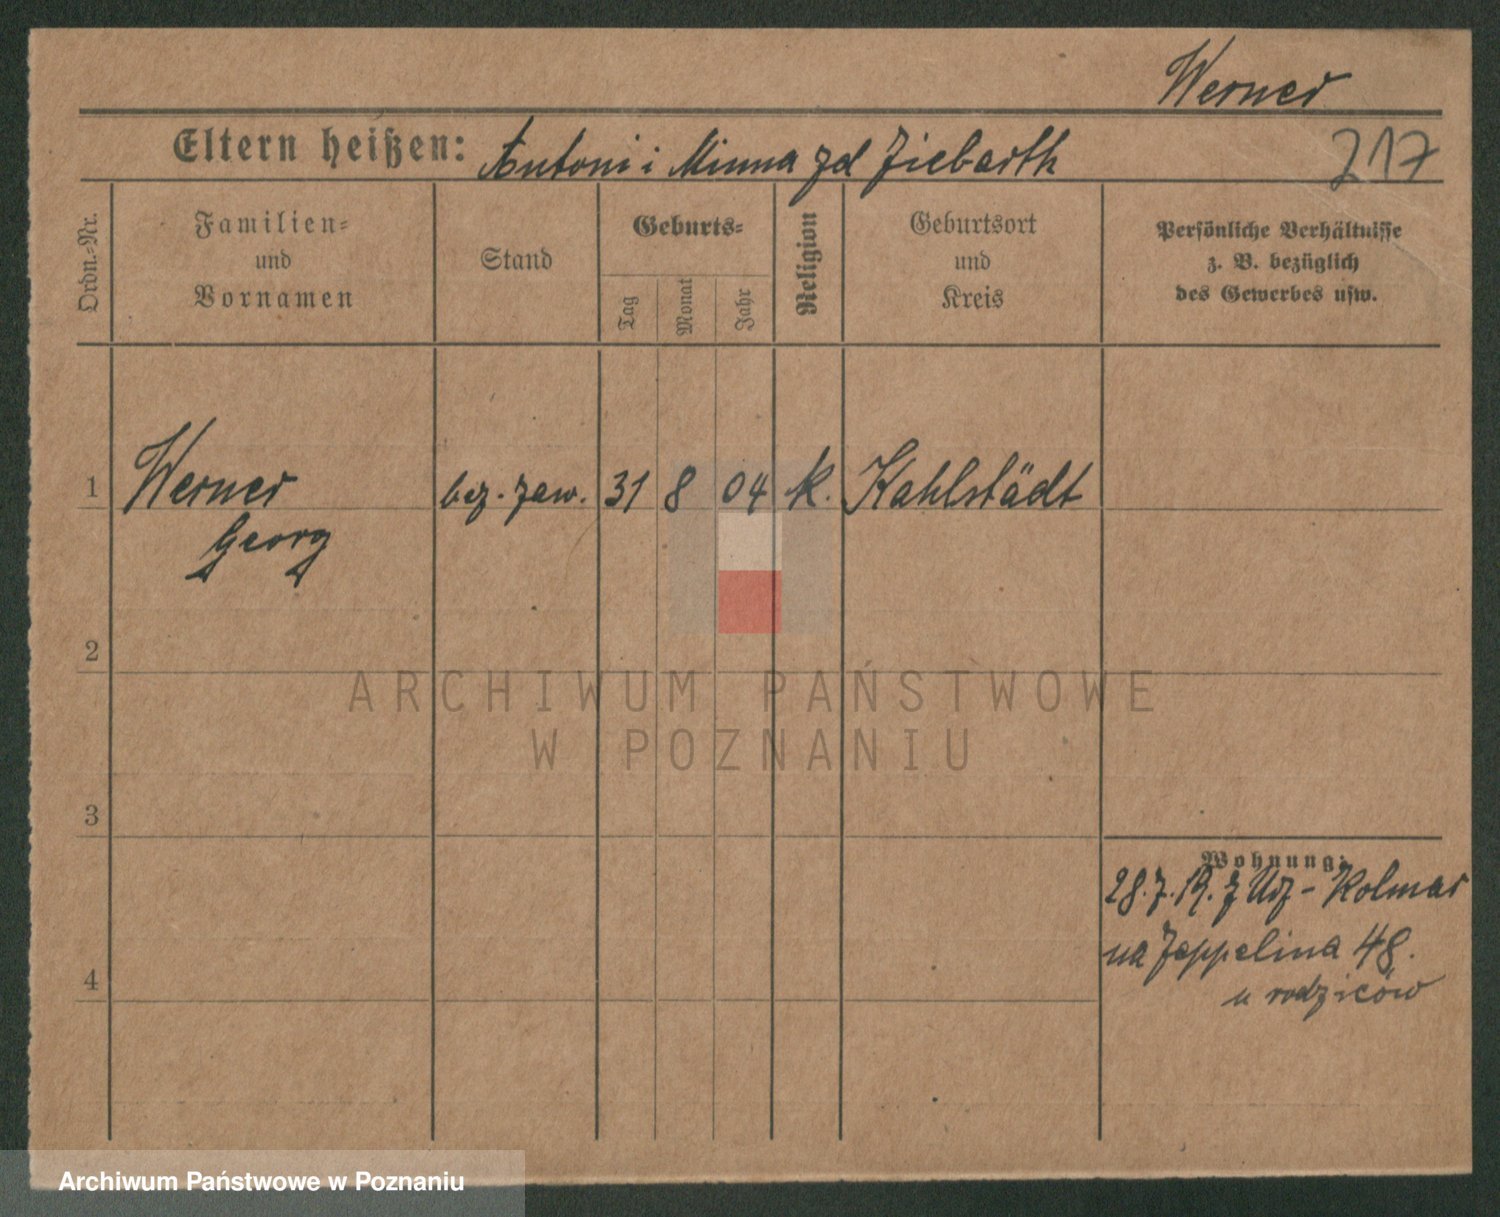 Werner
Eltern heißen: Antoni i Minna zd Ziebarth
217
Ordn.-Nr.
Familien-
und
Vornamen
Stand
Geburts-
Tag
Monat
Jahr
Religion
Geburtsort
und
Kreis
Persönliche Verhältnisse
z. B. bezüglich
des Gewerbes usw.
1 Werner bez. zaw. 31 8 04 k. Kahlstädt
Georg
2
ARCHIWUM PAŃSTWOWE
W POZNANIU
3
Wohnung:
28.7.19. z - Kolmar
na Zeppelina 48.
4
u rodziców
Archiwum Państwowe w Poznaniu